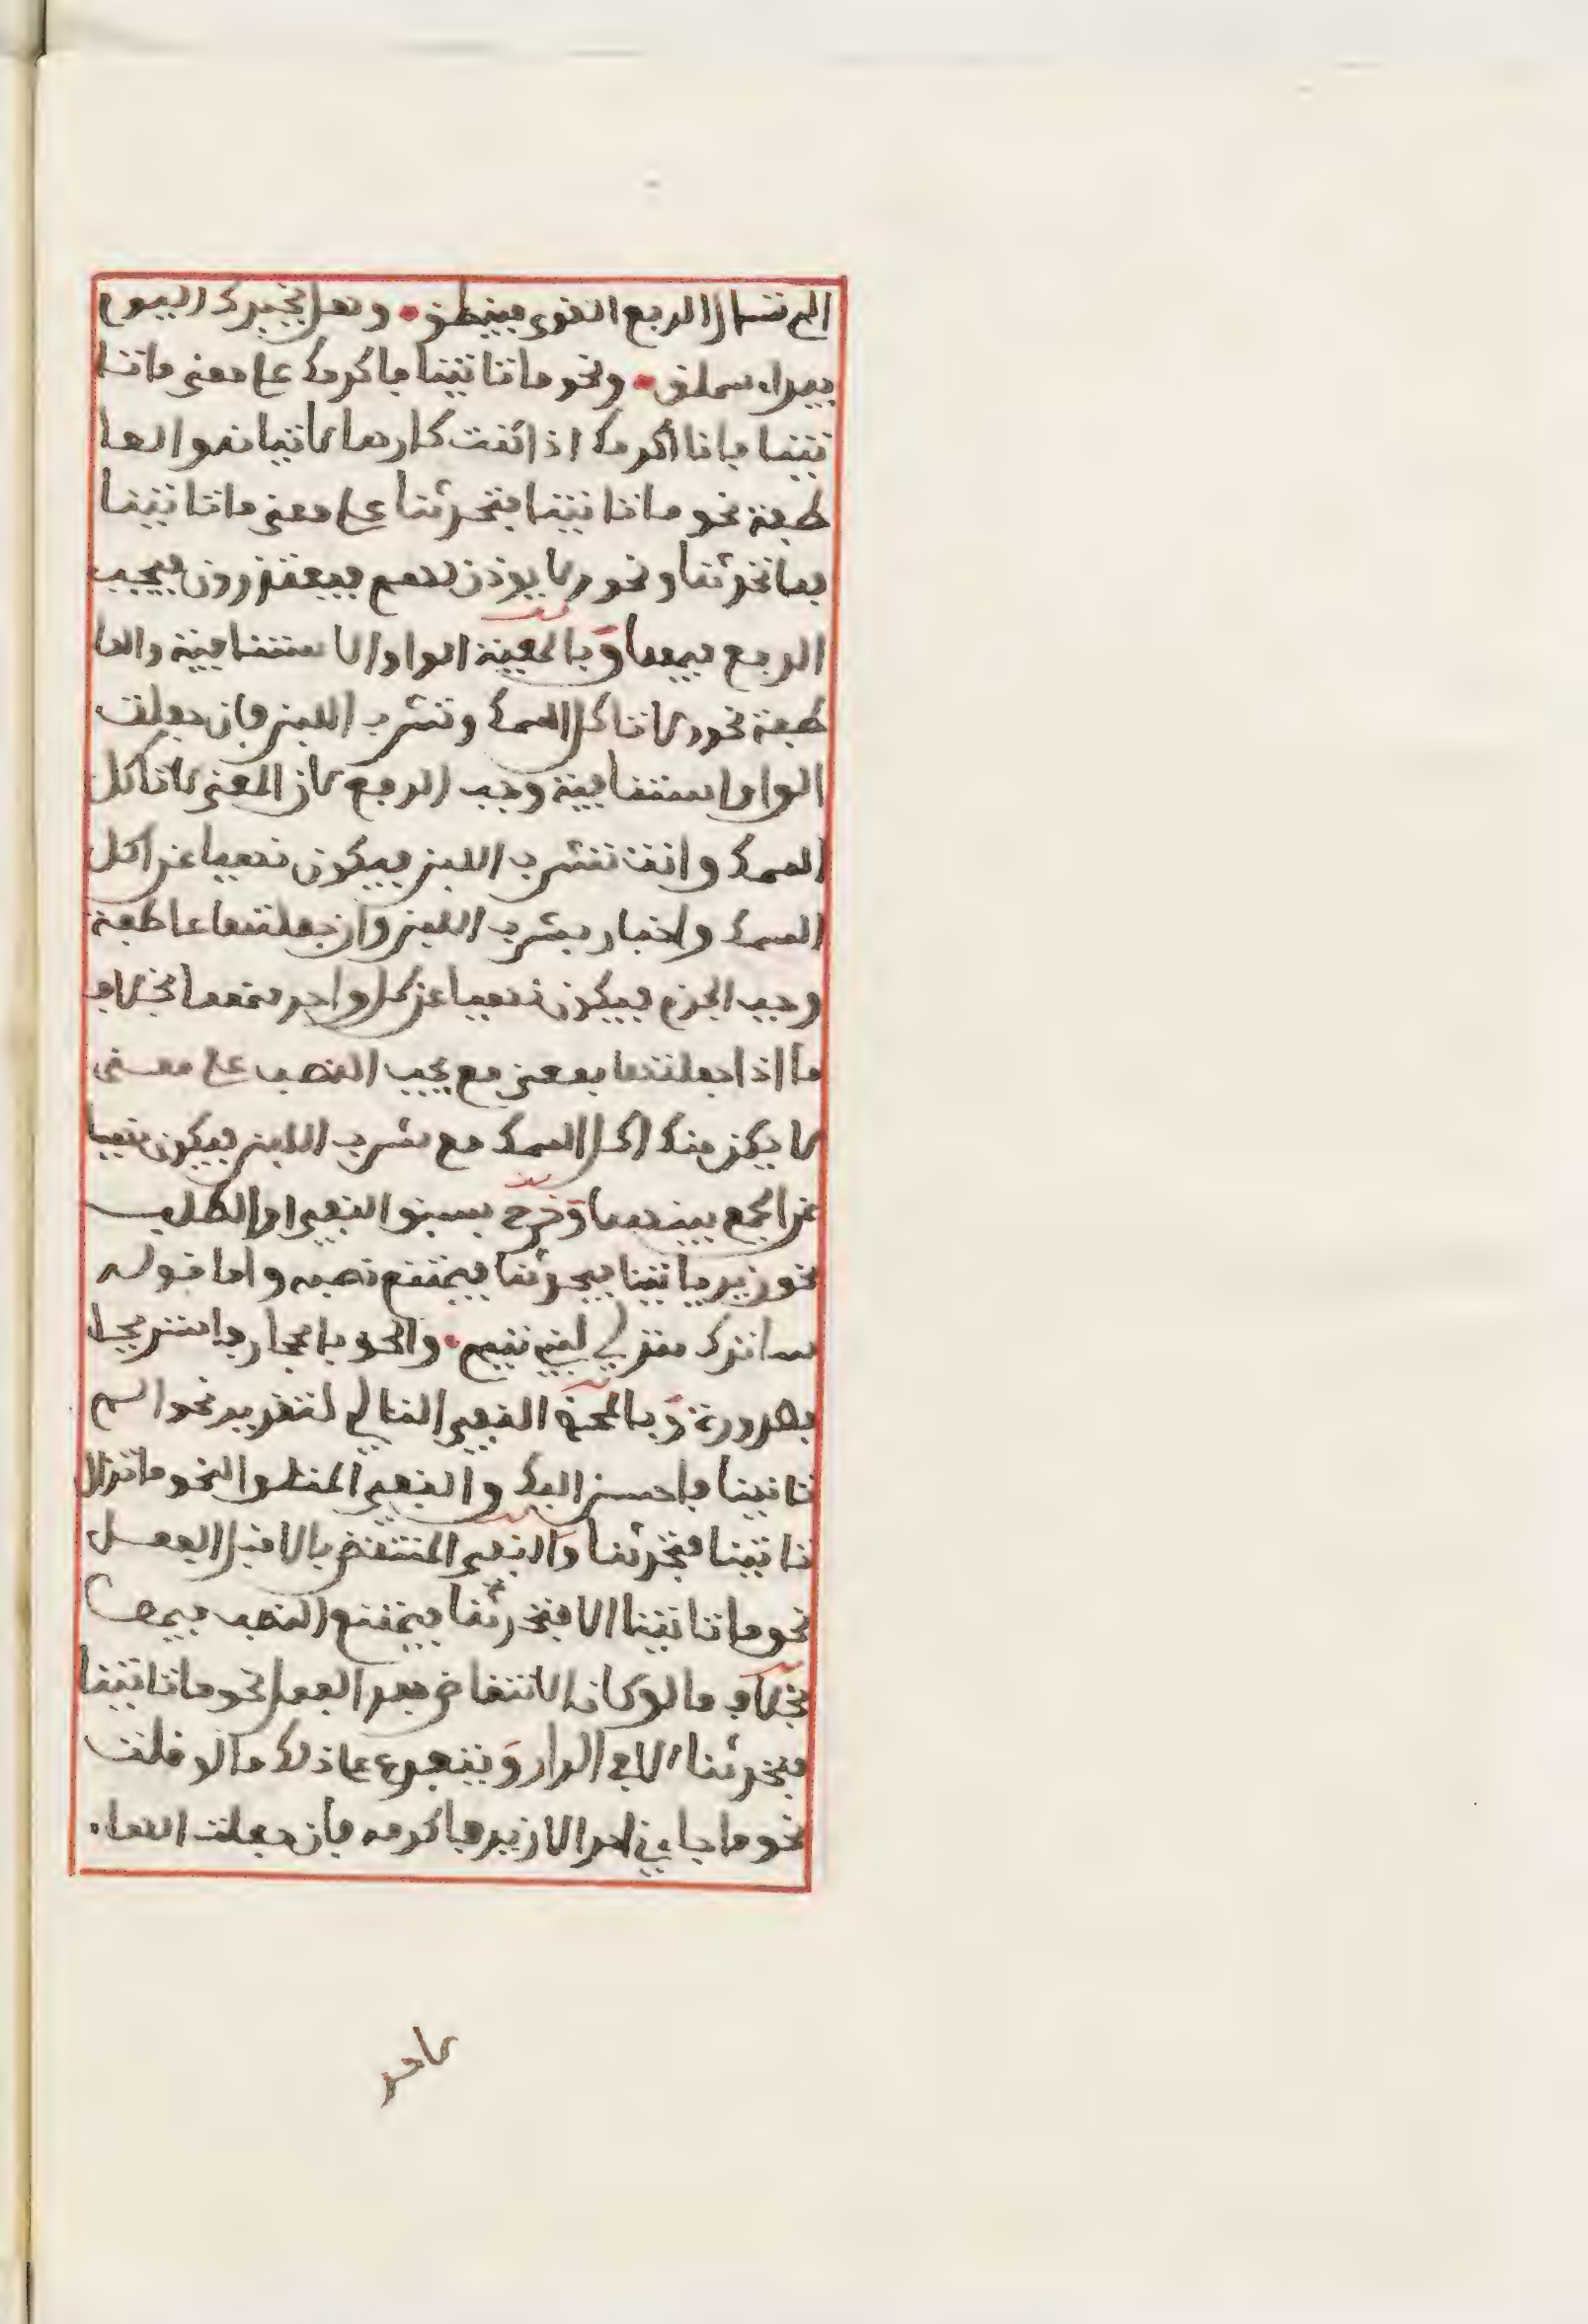 الم تسأل الربع القوى فينطق • وهل يخبرك اليوم
بيداء سملق • ونحو ما تاتينا فاكرمك على معنى ما تا
تينا فانا اكرمك اذا كنت كارها لاتيانه والعا
طفة نحو ما تاتينا فتحدثنا على معنى ما تاتينا
فما تحدثنا ونحو ولا يوذن لهم فيعتذرون فيجب
الرفع فيهما وبالمعية الواو الاستئنافية والعا
طفة نحو لا تاكل السمك وتشرب اللبن فان جعلت
الواو استئنافية وجب الرفع لان المعنى لا تاكل
السمك وانت تشرب اللبن فيكون نهيا عن اكل
السمك واخبار بشرب اللبن وان جعلتها عاطفة
وجب الجزم فيكون نهيا عن كل واحد منهما بخلاف
ما اذا جعلتها بمعنى مع يجب النصب على معنى
لا يكن منك اكل السمك مع شرب اللبن فيكون نهيا
عن الجمع بينهما وخرج بسبق النفي او الطلب
نحو زيد ياتينا فيحدثنا فيمتنع نصبه واما قوله
ساترك منزلي لبني تميم • والحق بالحجاز فاستريحا
فضرورة وبالمحض النفي التالي لتقرير نحو الم
تاتينا فاحسن اليك والنفي المتلو النحو ما تزال
تاتينا فتحدثنا والنفي المنتقض بالا قبل الفعل
نحو ما تاتينا الا فتحدثنا فيمتنع النصب فيها
بخلاف ما لو كان الانتقاض بعد الفعل نحو ما تاتينا
فتحدثنا الا في الدار ويتفرع على ذلك ما لو قلت
نحو ما جاءني احد الا زيد فاكرمه فان جعلت الهاء
لاحد